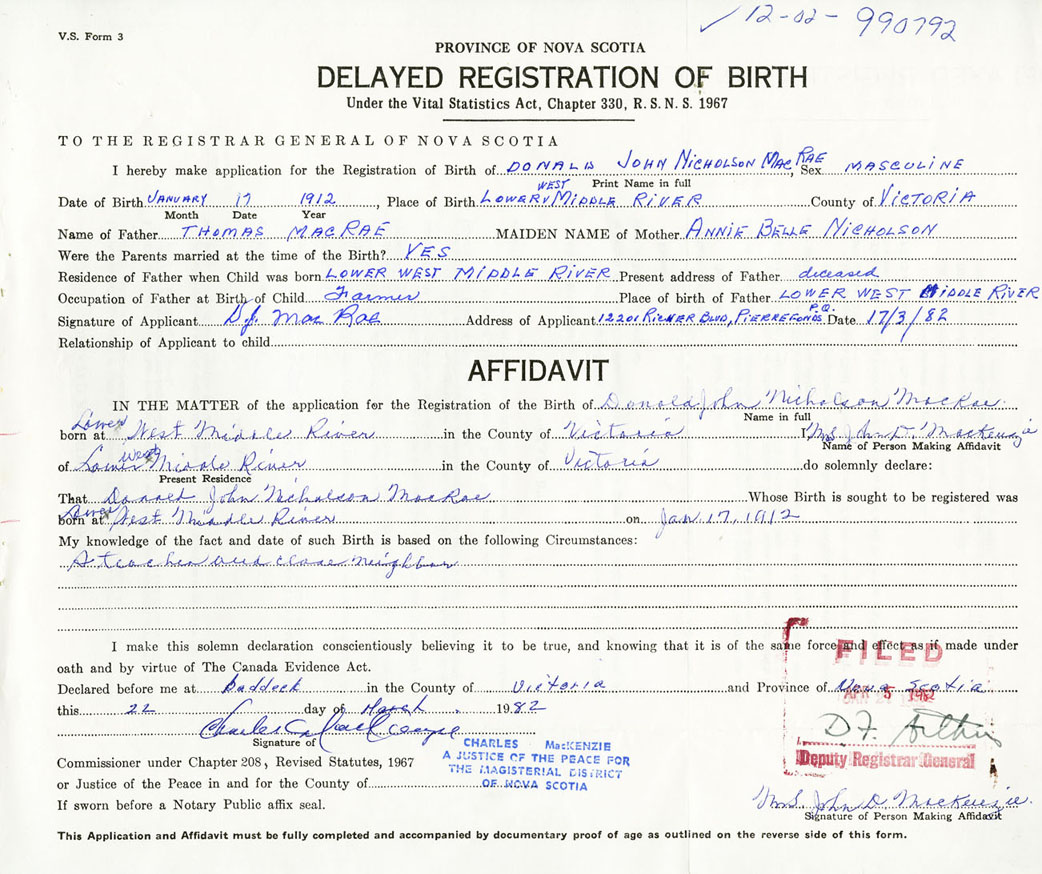 ✓ 12-02-990792
V.S. Form 3
PROVINCE OF NOVA SCOTIA
DELAYED REGISTRATION OF BIRTH
Under the Vital Statistics Act, Chapter 330, R.S.N.S. 1967
TO THE REGISTRAR GENERAL OF NOVA SCOTIA
I hereby make application for the Registration of Birth of DONALD JOHN NICHOLSON MACRAE, Sex MASCULINE
Print Name in full
Date of Birth JANUARY 17 1912, Place of Birth LOWER WEST MIDDLE RIVER County of VICTORIA
Month Date Year
Name of Father THOMAS MACRAE MAIDEN NAME of Mother ANNIE BELLE NICHOLSON
Were the Parents married at the time of the Birth? YES
Residence of Father when Child was born LOWER WEST MIDDLE RIVER Present address of Father deceased
Occupation of Father at Birth of Child Farmer Place of birth of Father LOWER WEST MIDDLE RIVER
Signature of Applicant D.J. MacRae Address of Applicant 12201 RICHER BLVD, PIERREFONDS P.Q. Date 17/3/82
Relationship of Applicant to child
AFFIDAVIT
IN THE MATTER of the application for the Registration of the Birth of Donald John Nicholson MacRae
Name in full
born at Lower West Middle River in the County of Victoria I, Mrs John D. MacKenzie
Name of Person Making Affidavit
of Lower West Middle River in the County of Victoria do solemnly declare:
Present Residence
That Donald John Nicholson MacRae Whose Birth is sought to be registered was
born at Lower West Middle River on Jan 17, 1912
My knowledge of the fact and date of such Birth is based on the following Circumstances:
A teacher and close neighbor
I make this solemn declaration conscientiously believing it to be true, and knowing that it is of the same force and effect as if made under
oath and by virtue of The Canada Evidence Act.
FILED
Declared before me at Baddeck in the County of Victoria and Province of Nova Scotia
this 22 day of March 1982
Charles MacKenzie
Signature of
CHARLES MacKENZIE
A JUSTICE OF THE PEACE FOR
THE MAGISTERIAL DISTRICT
OF NOVA SCOTIA
Commissioner under Chapter 208, Revised Statutes, 1967
or Justice of the Peace in and for the County of
If sworn before a Notary Public affix seal.
Deputy Registrar General
Mrs John D. MacKenzie
Signature of Person Making Affidavit
This Application and Affidavit must be fully completed and accompanied by documentary proof of age as outlined on the reverse side of this form.